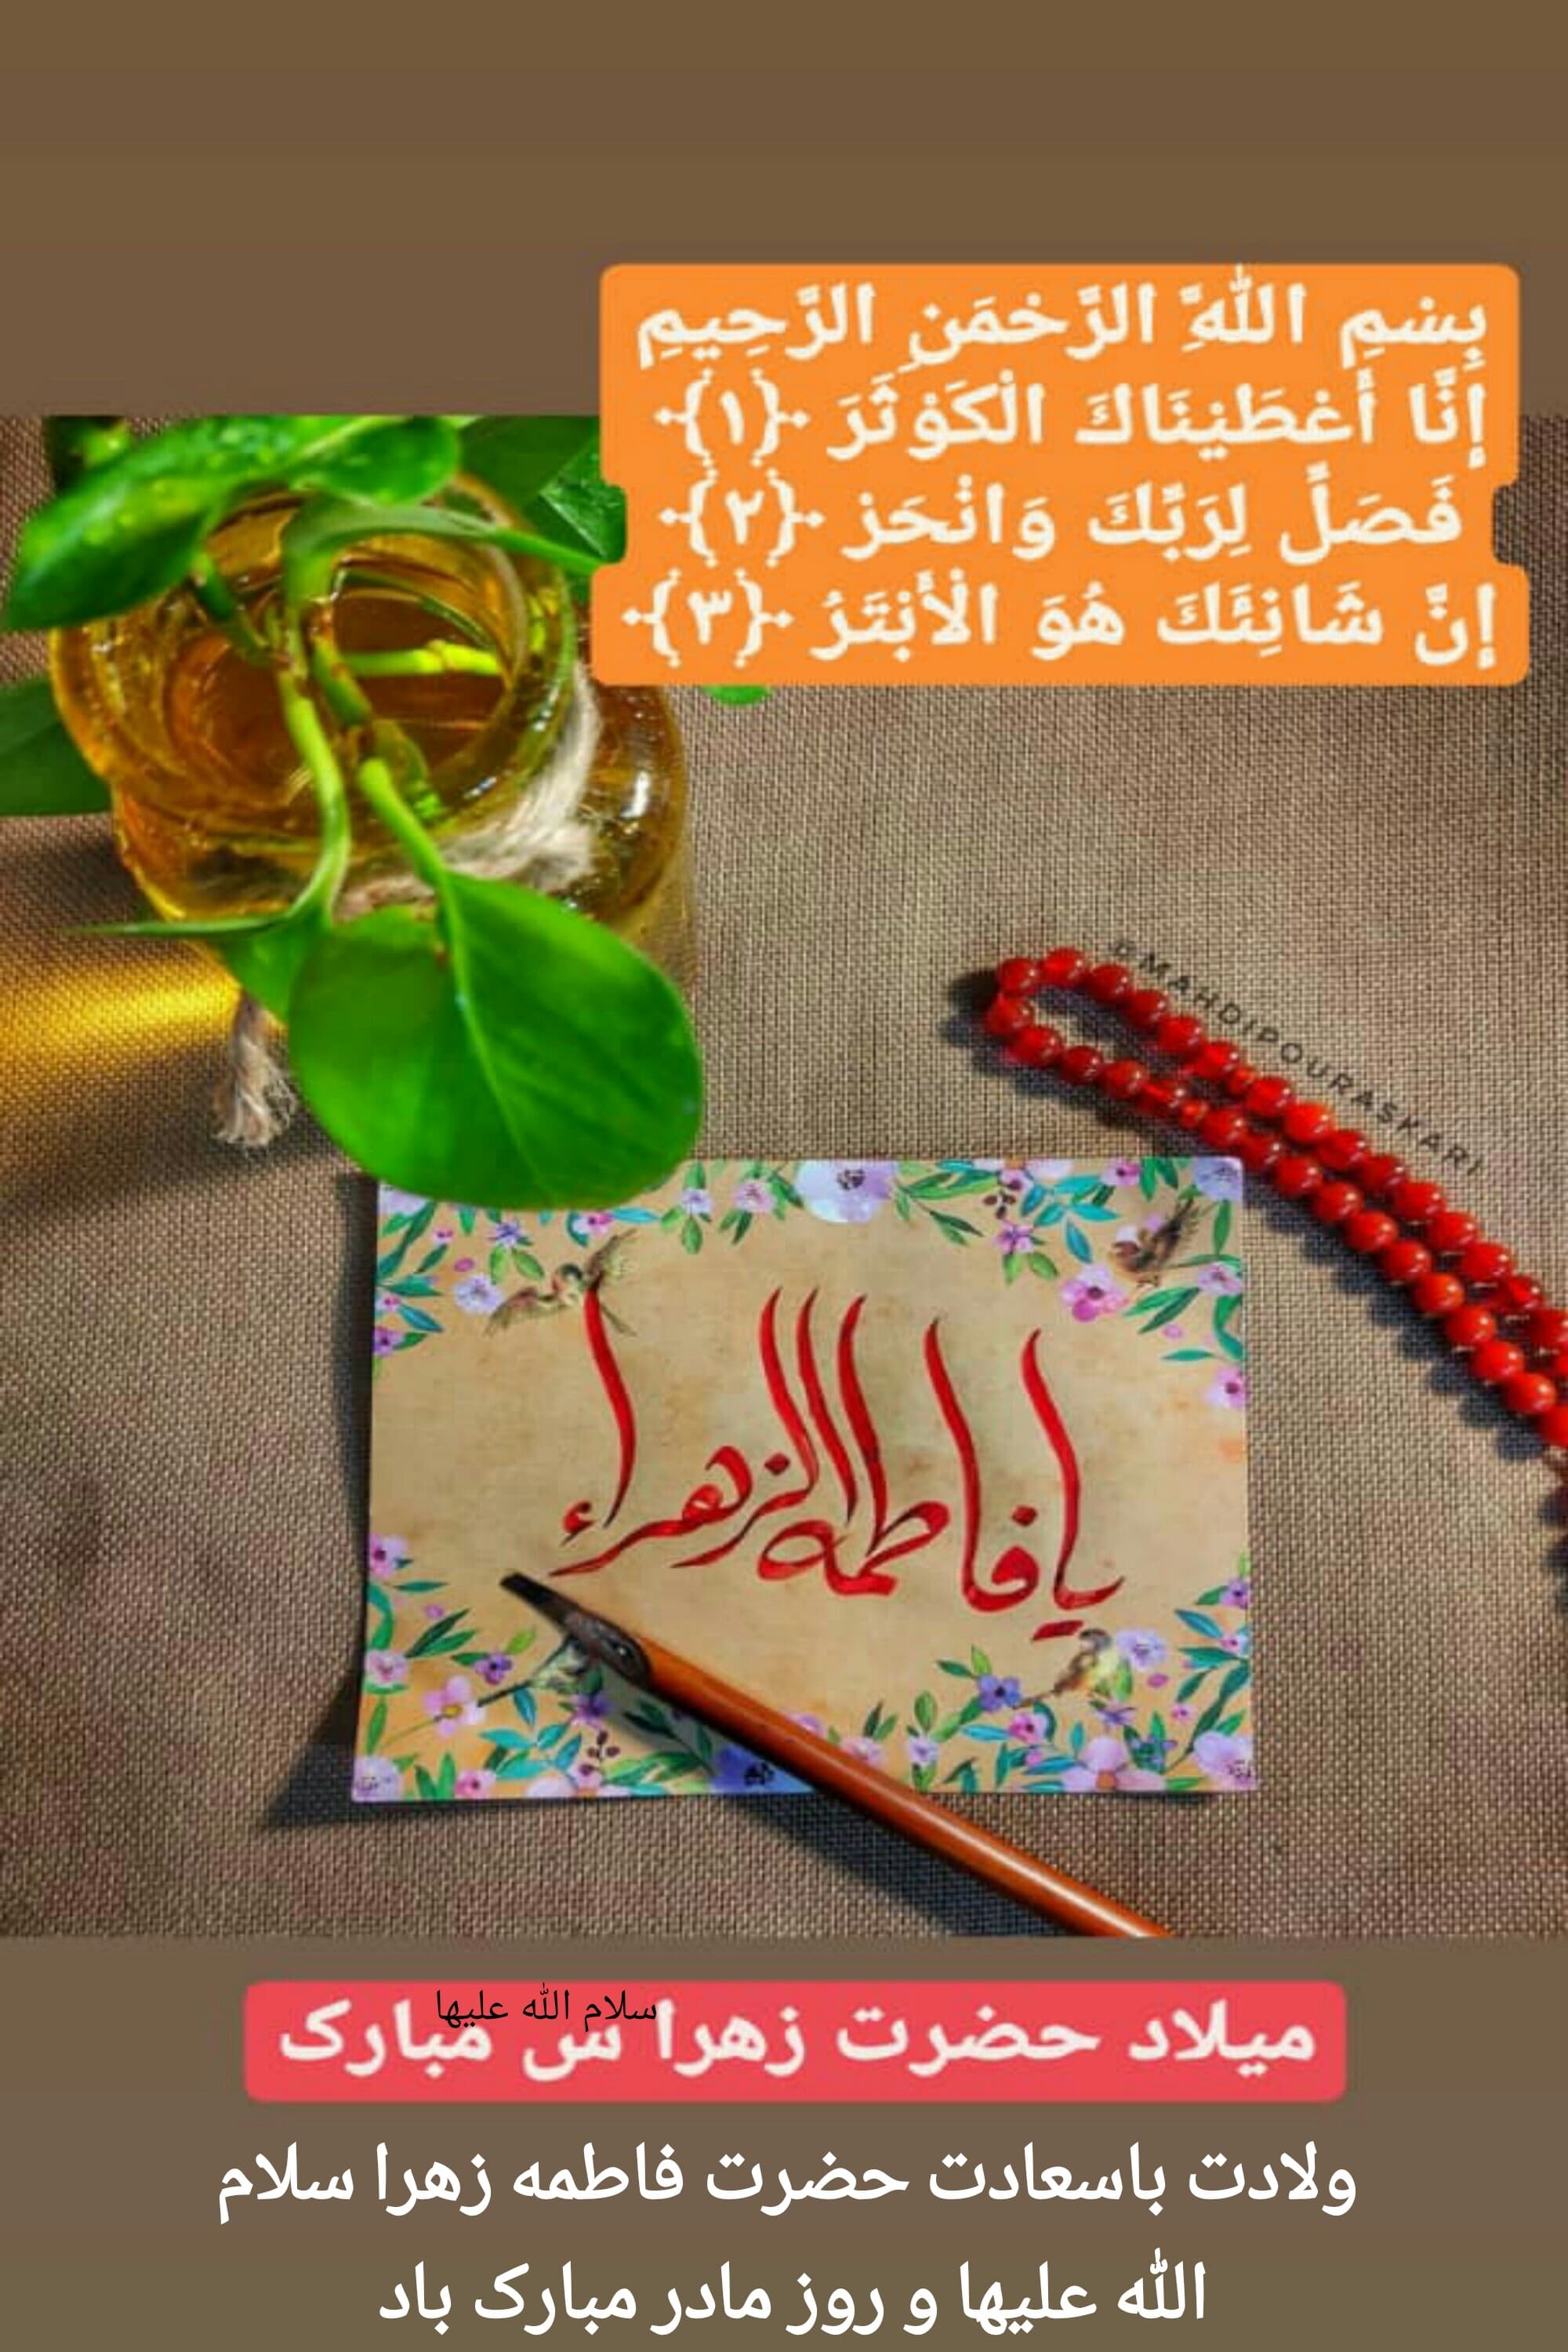 بِسْمِ اللَّهِ الرَّحْمَنِ الرَّحِيمِ
إِنَّا أَعْطَيْنَاكَ الْكَوْثَرَ ﴿۱﴾
فَصَلِّ لِرَبِّكَ وَانْحَرْ ﴿۲﴾
إِنَّ شَانِئَكَ هُوَ الْأَبْتَرُ ﴿۳﴾
@MAHDIPOURASKARI
یا فاطمه الزهراء
سلام الله علیها
میلاد حضرت زهرا س مبارک
ولادت باسعادت حضرت فاطمه زهرا سلام
الله علیها و روز مادر مبارک باد